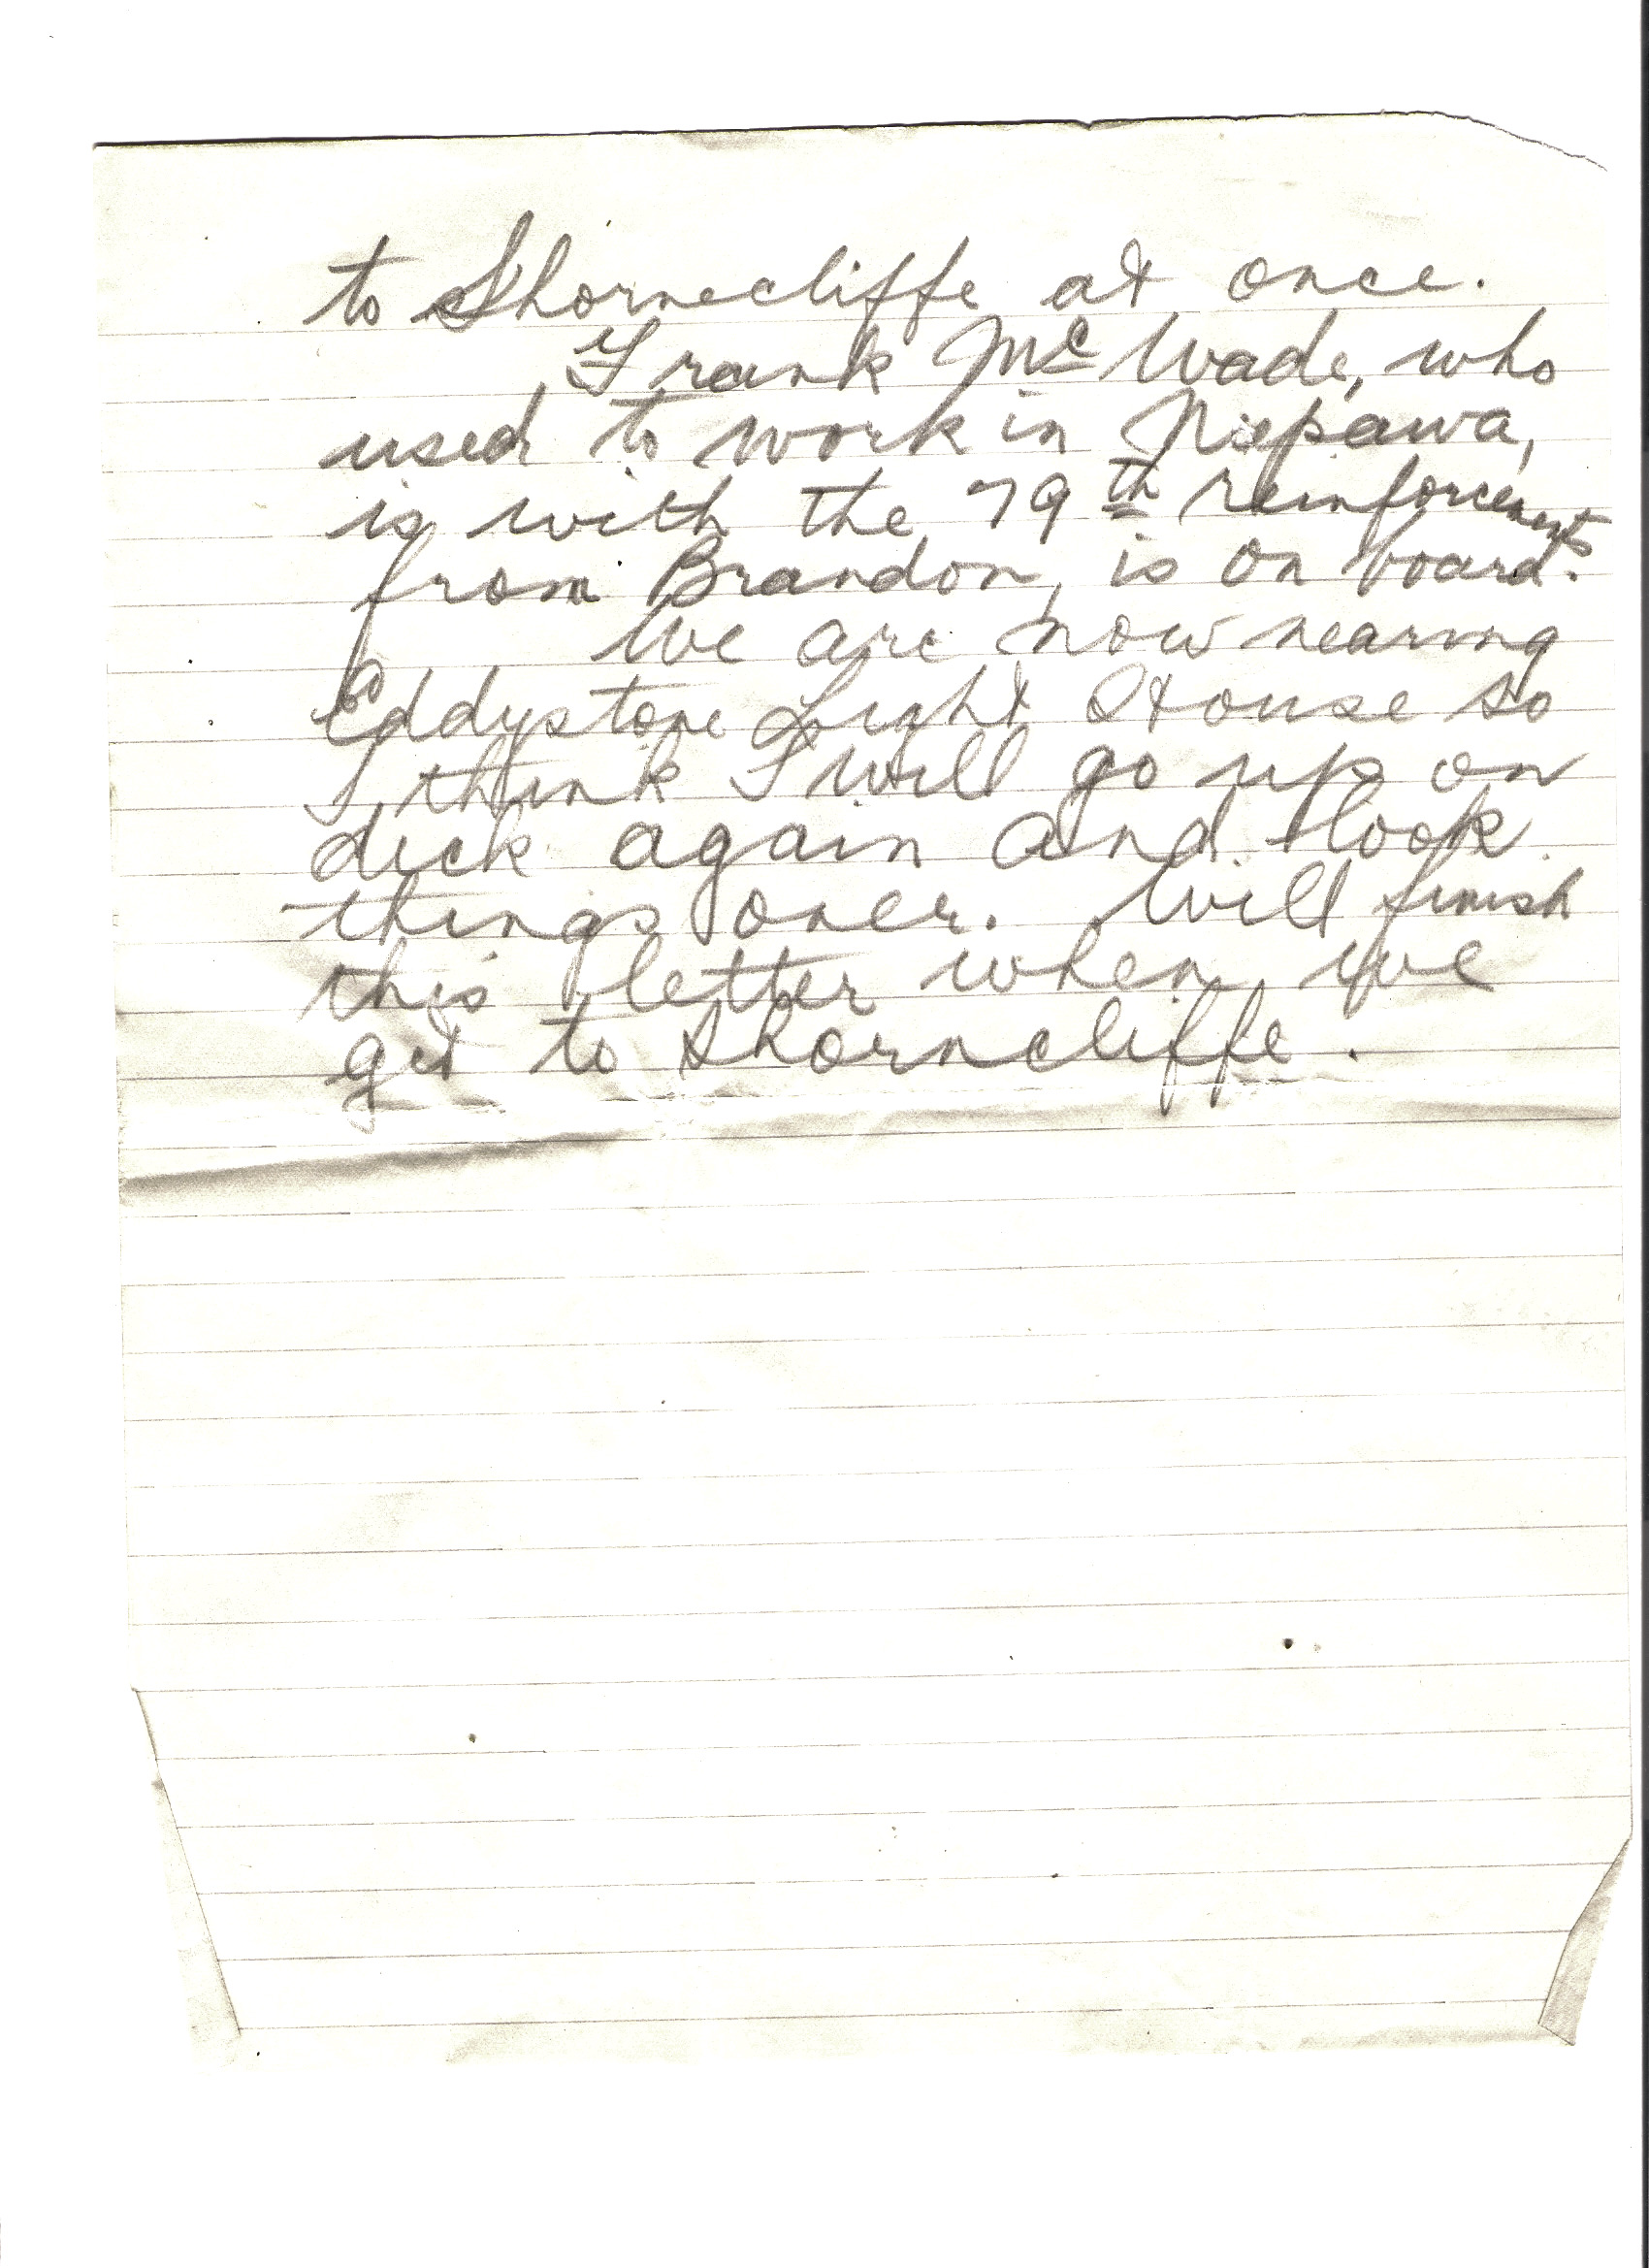 to Shornecliffe at once.
Frank McWade, who
used to work in Neepawa,
is with the 79th reinforcements
from Brandon, is on board.
We are now nearing
Eddystone Light House so
I think I will go up on
deck again and look
things over. Will finish
this letter when we
get to Shorncliffe.